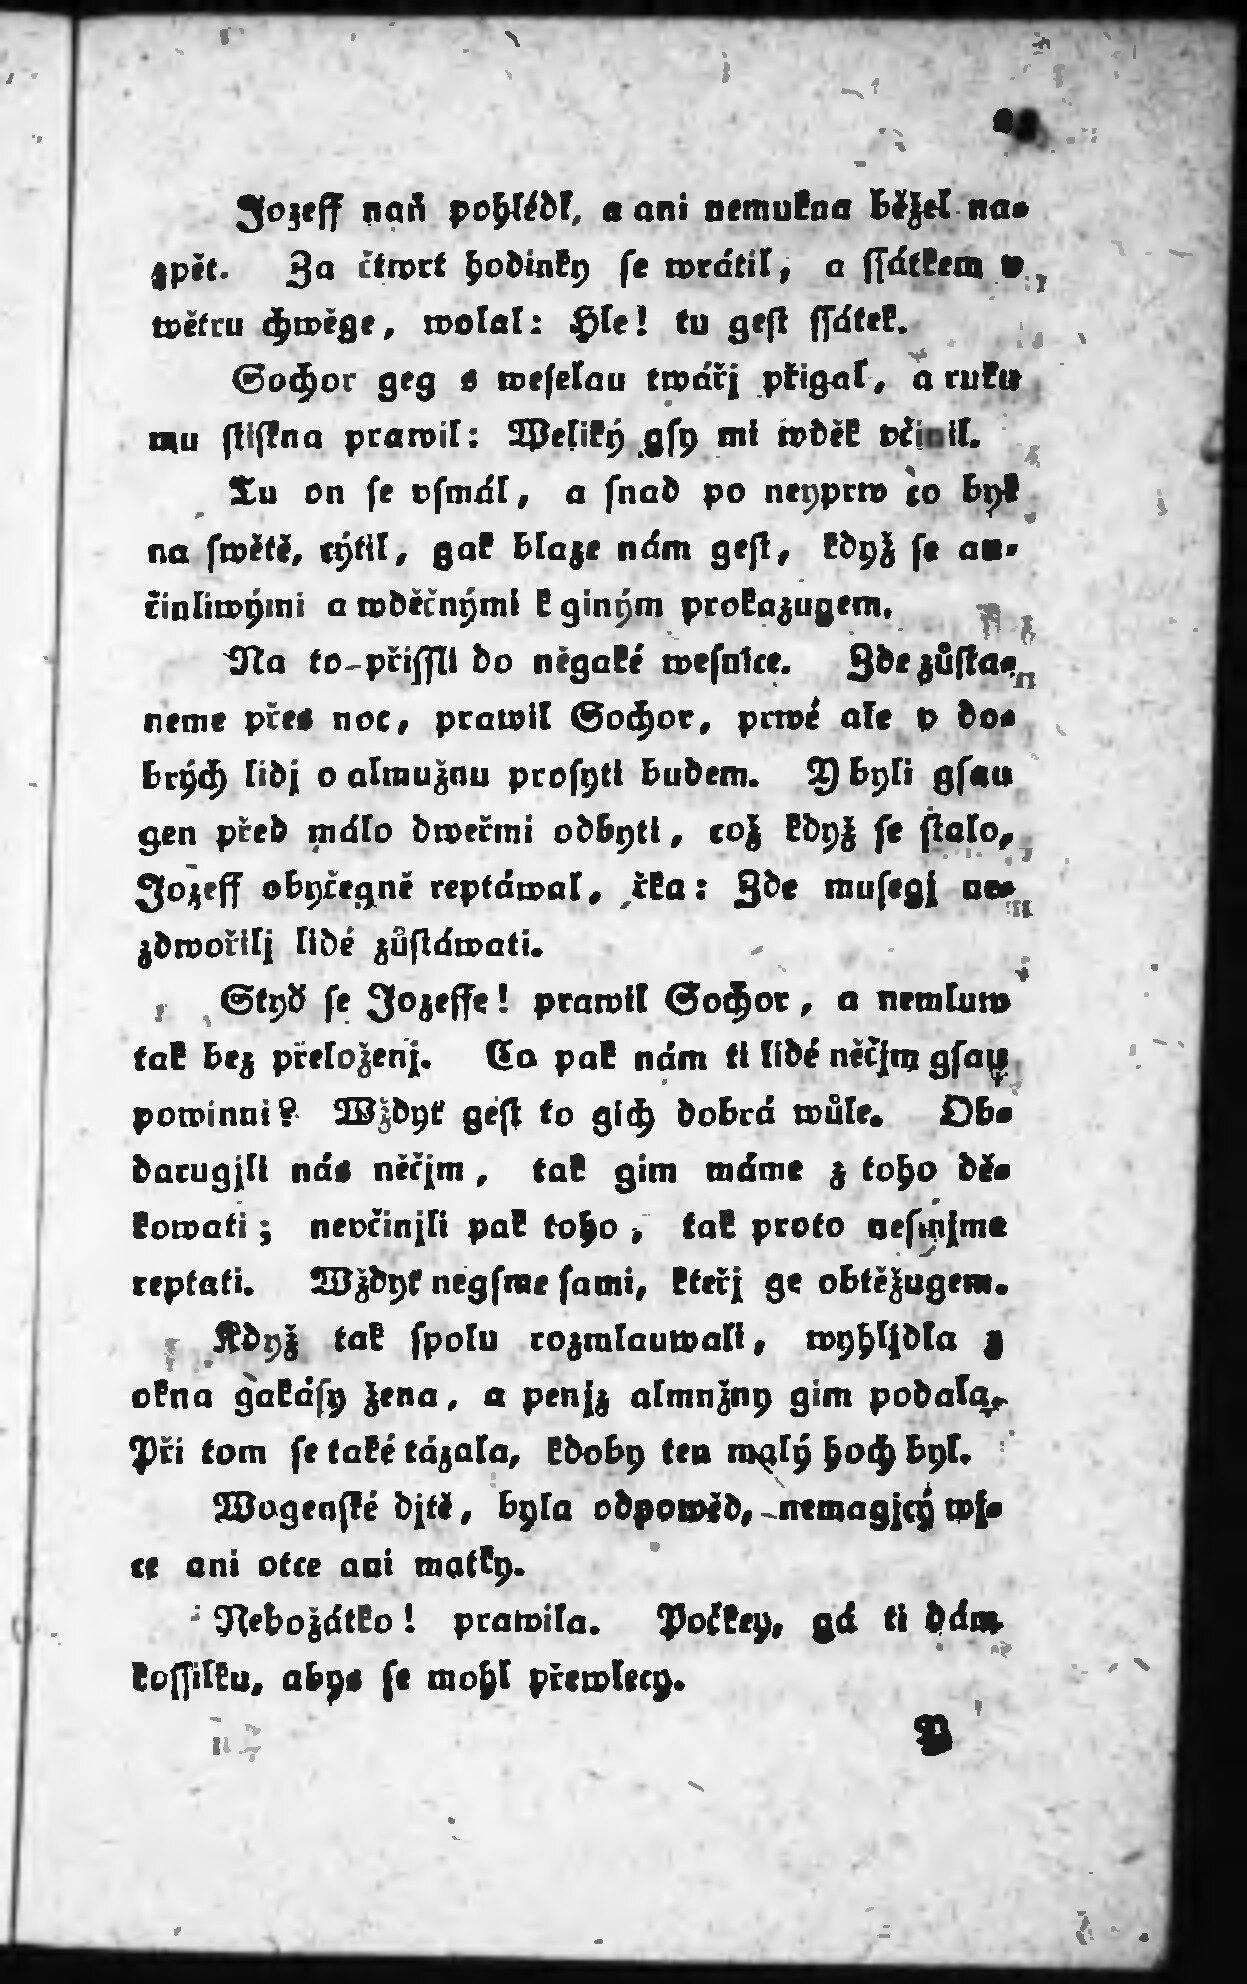 Jozeff naň pohlédl, a ani nemukna běžel na-
zpět. Za čtwrt hodinky se wrátil, a ssátkem v
wětru chwěge, wolal: Hle! tu gest ssátek.
Sochor geg s weselau twářj přigal, a ruku
mu stiskna prawil: Weliký gsy mi wděk včinil.
Tu on se vsmál, a snad po neyprw co byl
na swětě, cýtil, gak blaze nám gest, když se au-
činliwými a wděčnými k giným prokazugem.
Na to přissli do něgaké wesnice. Zde zůsta-
neme přes noc, prawil Sochor, prwé ale v do-
brých lidj o almužnu prosyti budem. Y byli gsau
gen před málo dweřmi odbyti, což když se stalo,
Jozeff obyčegně reptáwal, řka: Zde musegj ne-
zdwořilj lidé zůstáwati.
Styď se Jozeffe! prawil Sochor, a nemluw
tak bez přeloženj. Co pak nám ti lidé něčjm gsau
powinni? Wždyť gest to gich dobrá wůle. Ob-
darugjli nás něčjm, tak gim máme z toho dě-
kowati; nevčinjli pak toho, tak proto nesmjme
reptati. Wždyť negsme sami, kteřj ge obtěžugem.
Když tak spolu rozmlauwali, wyhljdla z
okna gakásy žena, a penjz almnžny gim podala.
Při tom se také tázala, kdoby ten malý hoch byl.
Wogenské djtě, byla odpowěd, nemagjcý wj-
ce ani otce ani matky.
Nebožátko! prawila. Počkey, gá ti dám
kossilku, abys se mohl přewlecy.